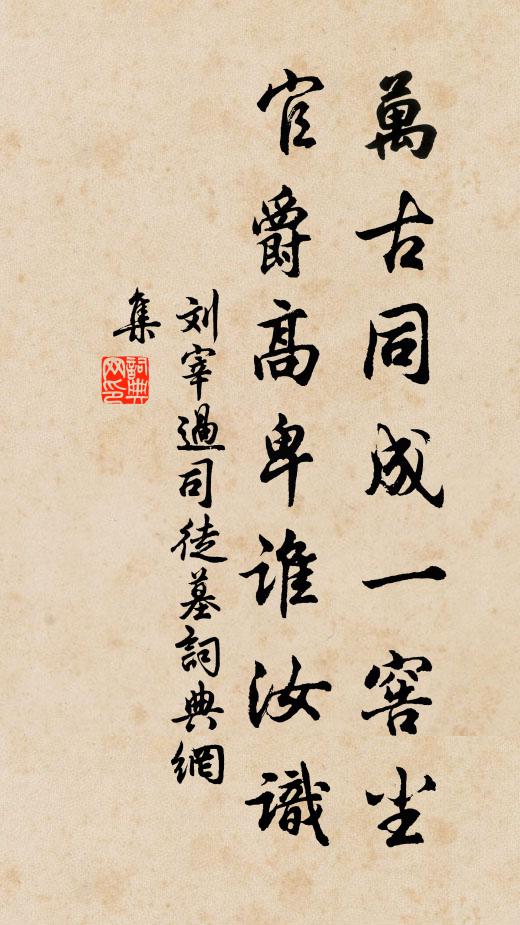 萬古同成一窖尘
官爵高卑谁汝識
刘宰過司徒墓詞典網
集
詞典网印